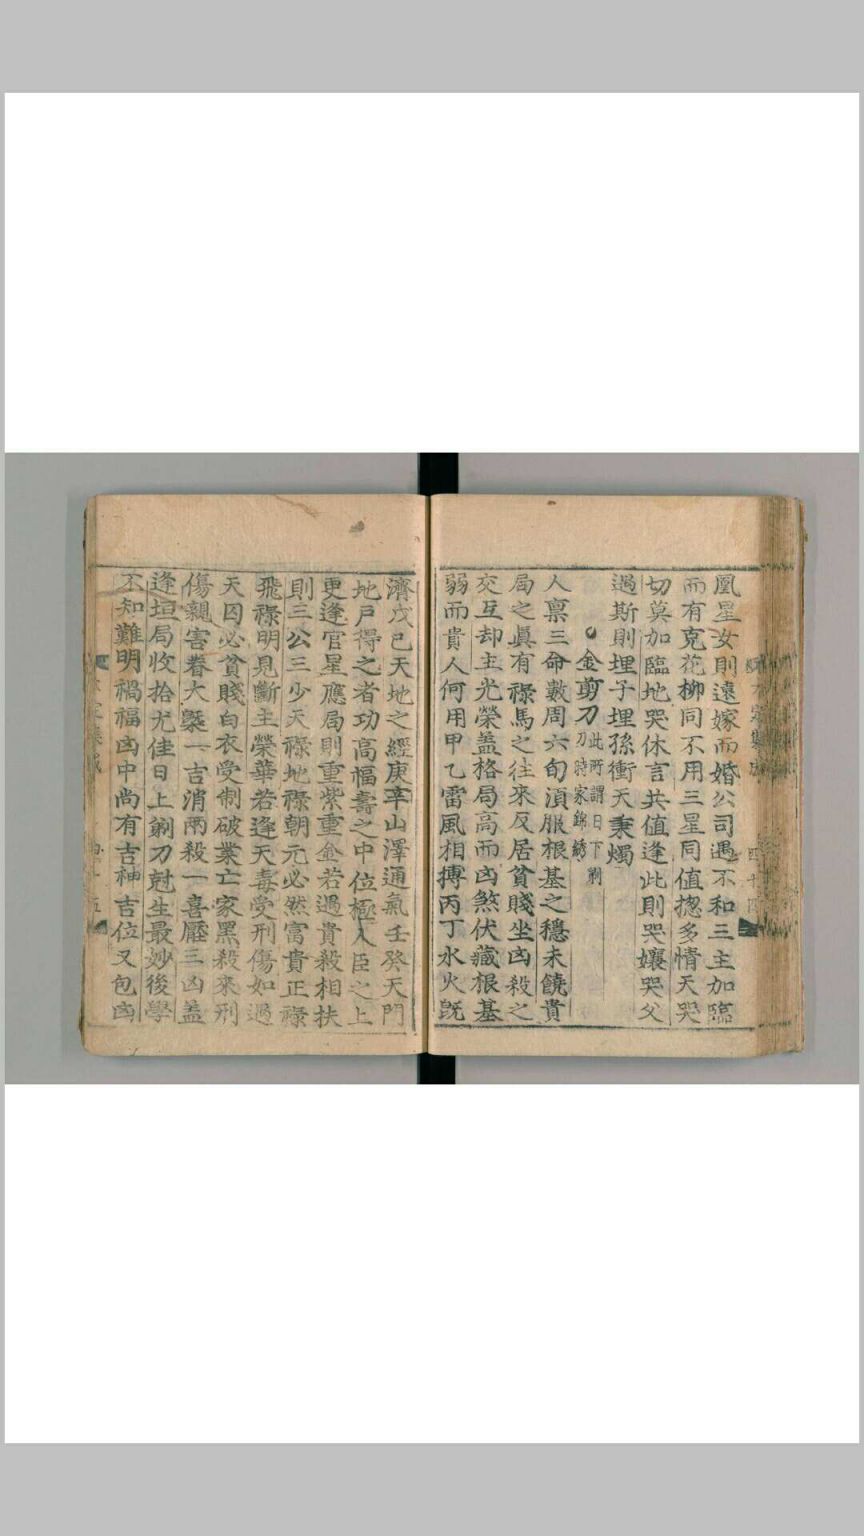 凰星女則遠嫁而婚公司遇不和三主加臨
而有克花柳同不用三星同值揔多情天哭
切莫加臨地哭休言共值逢此則哭孃哭父
過斯則埋子埋孫衝天秉燭
金剪刀此所謂日下剃
刀時家錦綉
人禀三命數周六旬湏服根基之穩未饒貴
局之眞有祿馬之往來反居貧賤坐凶殺之
交互却主光榮盖格局高而凶煞伏藏根基
弱而貴人何用甲乙雷風相摶丙丁水火旣
濟戊己天地之經庚辛山澤通氣壬癸天門
地戸得之者功高福壽之中位極人臣之上
更逢官星應局則重紫重金若過貴殺相扶
則三公三少天祿地祿朝元必然富貴正祿
飛祿明見斷主榮華若逢天毒受刑傷如過
天囚必貧賤白衣受制破業亡家黑殺來刑
傷親害眷大槩一吉消兩殺一喜壓三凶盖
逢垣局收拾尤佳日上剃刀尅生最妙後學
不知難明禍福凶中尚有吉神吉位又包凶